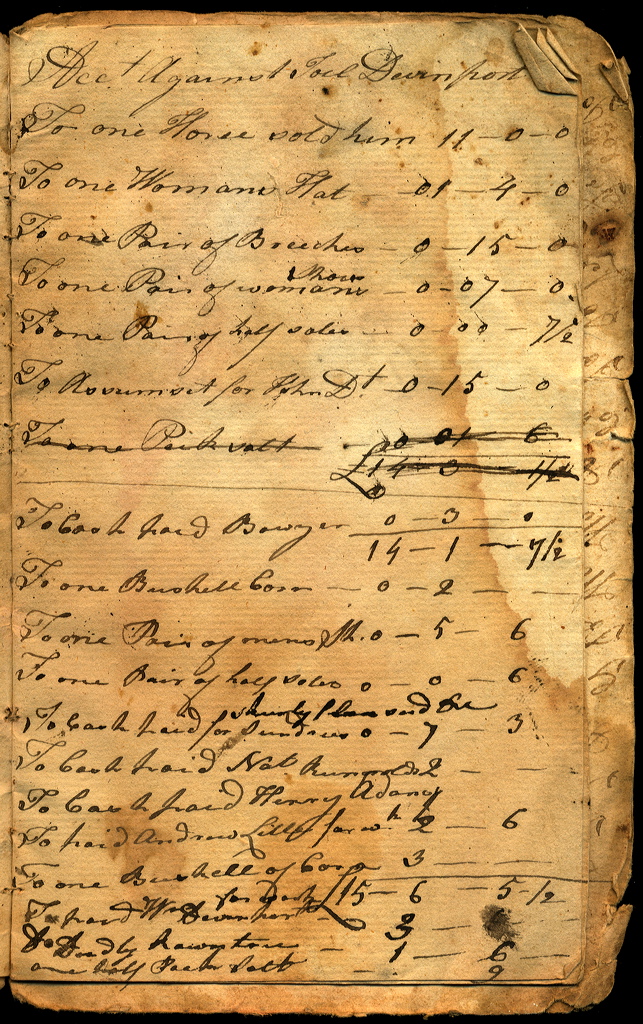 Acct Against Joel Devenport
To one Horse sold him 11 - 0 - 0
To one Womans Hat - 01 - 4 - 0
To one Pair of Breeches - 0 - 15 - 0
To one Pair of womans Shoes - 0 - 07 - 0
To one Pair of half soles - 0 - 00 - 7 1/2
To Assumsit for John Dt - 0 - 15 - 0
To one Peck salt - 00 01 6
£14 - 3 1/2
0
To Cash paid Bowyer 0 - 3 - 0
14 - 1 - 7 1/2
To one Bushell Corn - 0 - 2 - -
To one Pair of mens Sh. 0 - 5 - 6
To one Pair of half soles 0 - 0 - 6
To Cash paid for Sundries 0 - 7 - 3
To Cash paid Nat 2 - -
To Cash paid Henry Adams
To paid Andrew Lille for wk 2 - 6
To one Bushell of Corn 3 - -
£15 - 6 - 5 1/2
To paid Wm Devenport for 3 -
Do Dudly - 1 - 6 -
one half Peck Salt - . 9